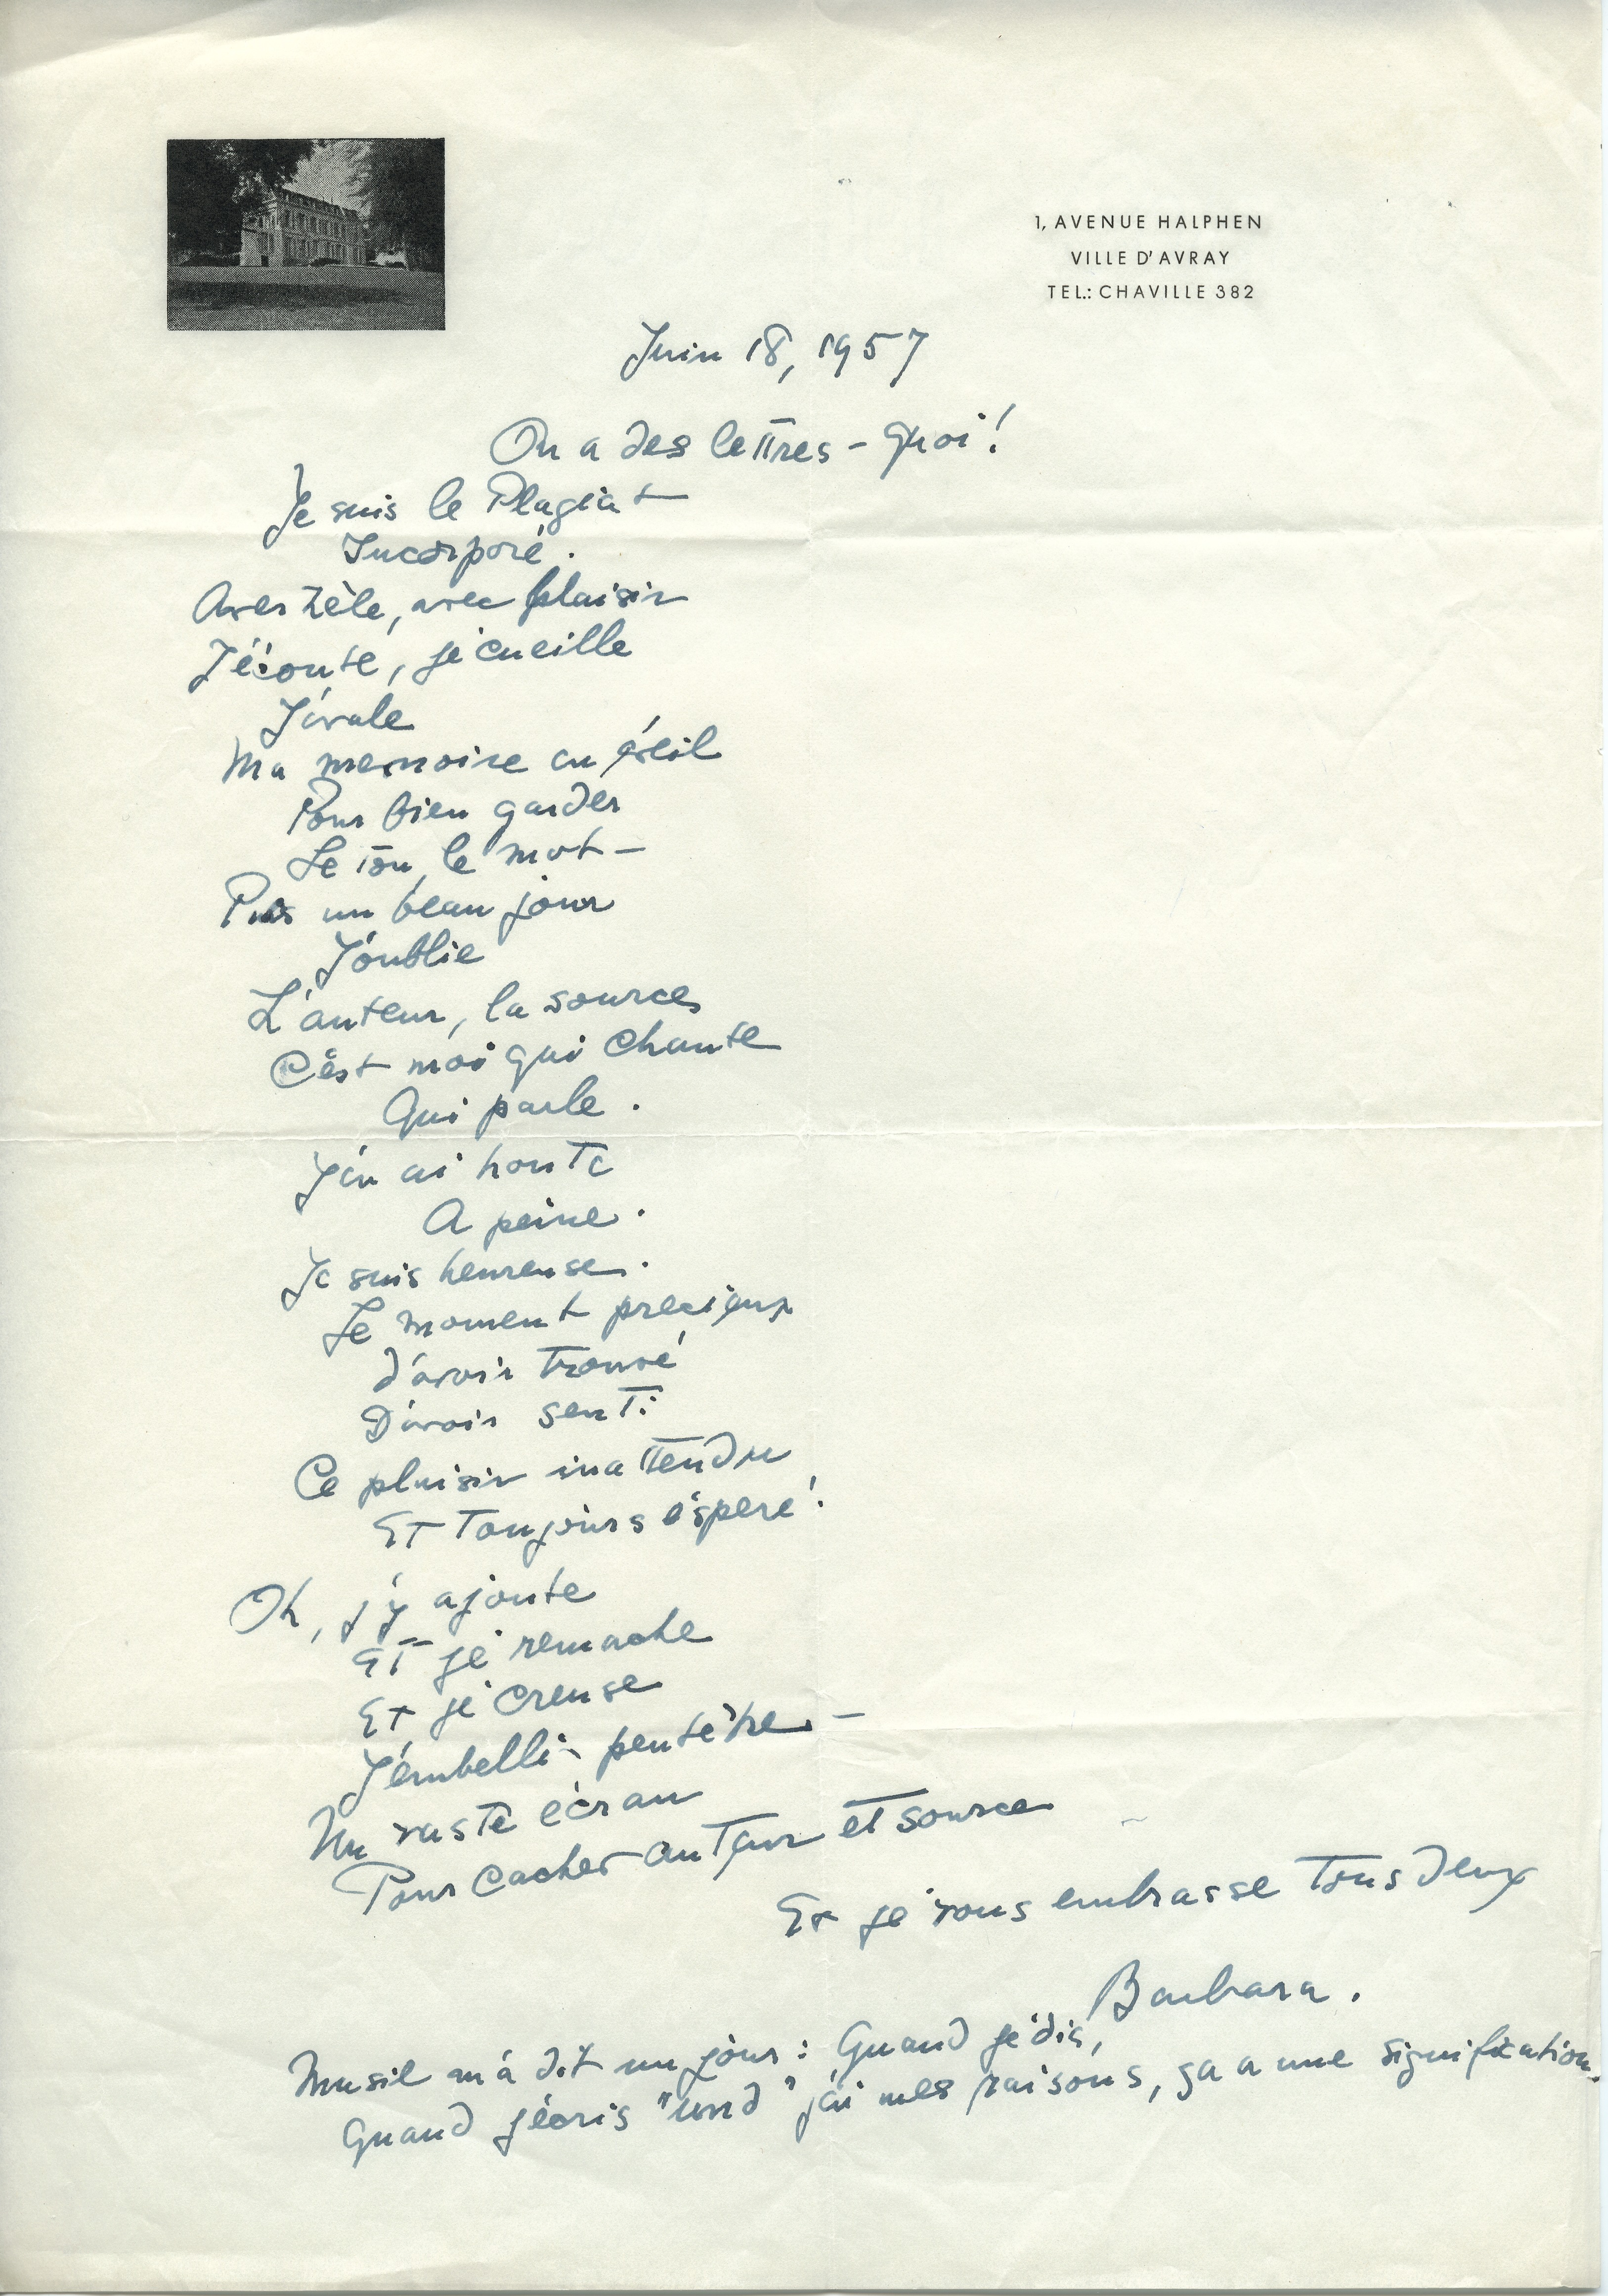 1, AVENUE HALPHEN
VILLE D'AVRAY
TEL.: CHAVILLE 382
Juin 18, 1957
On a des lettres - quoi!
Je suis le Plagiat
Incorporé.
Avec zèle, avec plaisir
J'écoute, je cueille
J'avale
Ma memoire en éveil
Pour bien garder
Le ton, le mot -
Puis un beau jour
J'oublie
L'auteur, la source
C'est moi qui chante
Qui parle.
J'en ai honte
A peine.
Je suis heureuse.
Le moment precieux
d'avoir trouvé
D'avoir senti
Ce plaisir inattendu
Et toujours éspéré.
Oh, j'y ajoute
Et je remache
Et je creuse
J'embellis peutêtre -
Un vaste écran
Pour cacher auteur et source
Et je vous embrasse tous deux
Barbara.
Musil m'a dit un jour: Quand je dis,
Quand j'écris "und" j'ai mes raisons, ça a une signification.